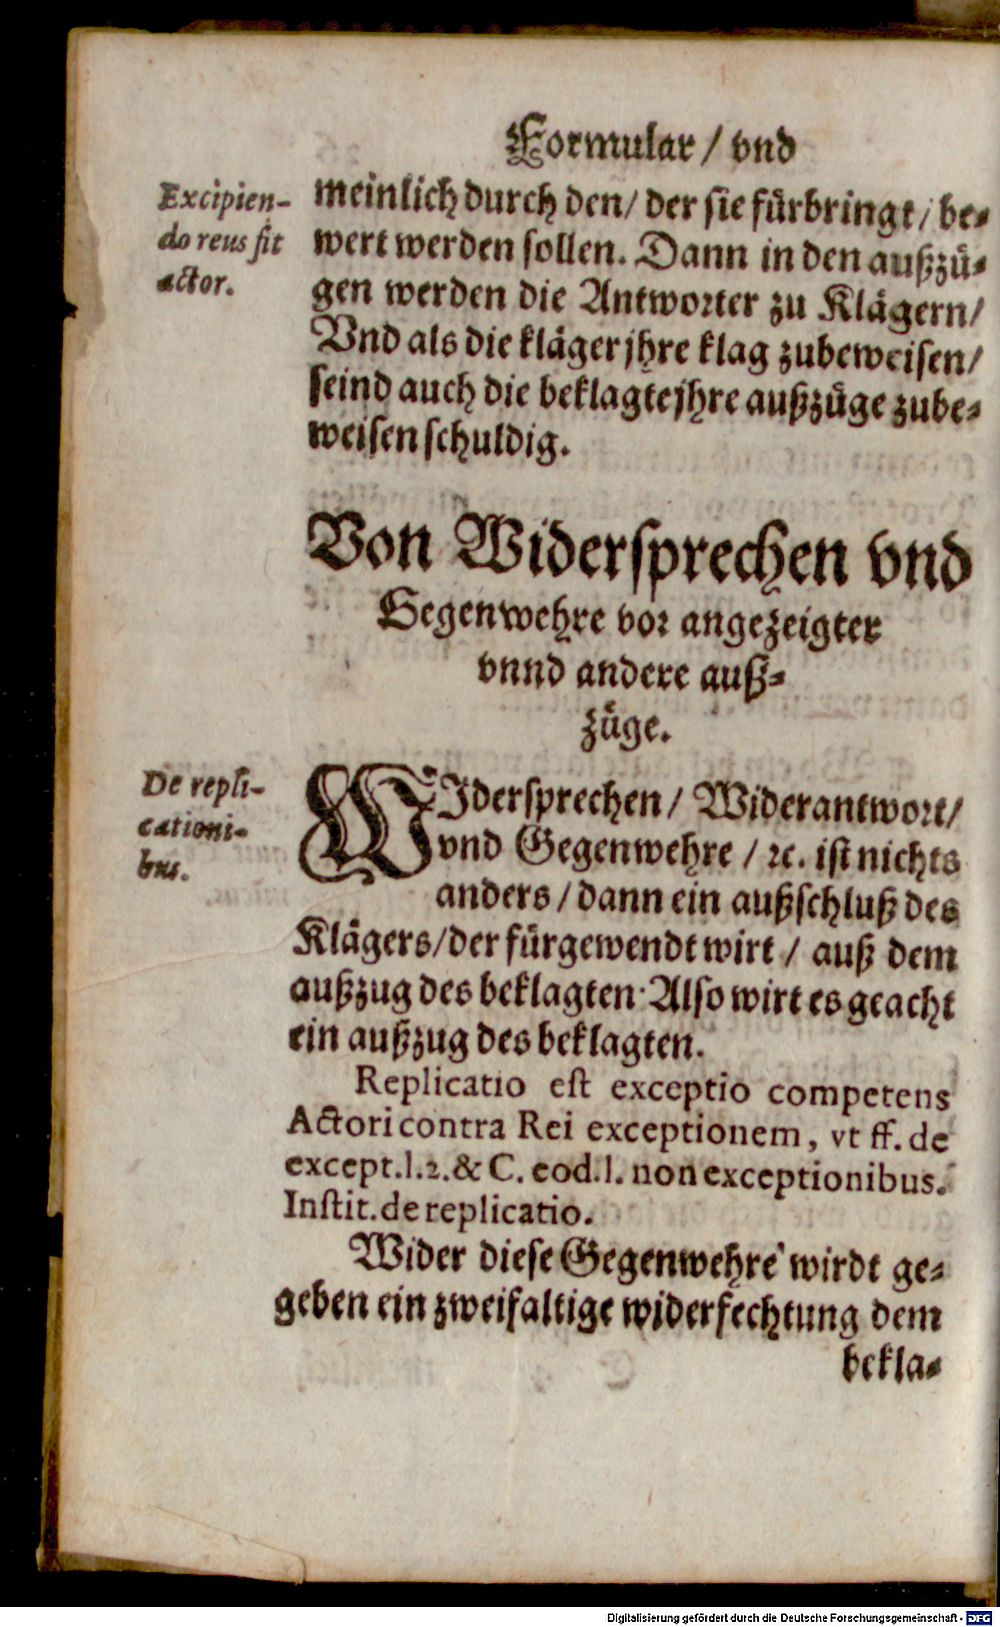 Formular / vnd
Excipien-
do reus fit
actor.
meinlich durch den / der sie fürbringt / be-
wert werden sollen. Dann in den außzü-
gen werden die Antworter zu Klägern /
Vnd als die kläger jhre klag zubeweisen /
seind auch die beklagte jhre außzüge zube-
weisen schuldig.
Von Widersprechen vnd
Gegenwehre vor angezeigter
vnnd andere auß-
züge.
De repli-
cationi-
bus.
WIdersprechen / Widerantwort /
vnd Gegenwehre / ꝛc. ist nichts
anders / dann ein außschluß des
Klägers / der fürgewendt wirt / auß dem
außzug des beklagten. Also wirt es geacht
ein außzug des beklagten.
Replicatio est exceptio competens
Actori contra Rei exceptionem, vt ff. de
except. l. 2. & C. eod. l. non exceptionibus.
Instit. de replicatio.
Wider diese Gegenwehre wirdt ge-
geben ein zweifaltige widerfechtung dem
bekla-
Digitalisierung gefördert durch die Deutsche Forschungsgemeinschaft - DFG